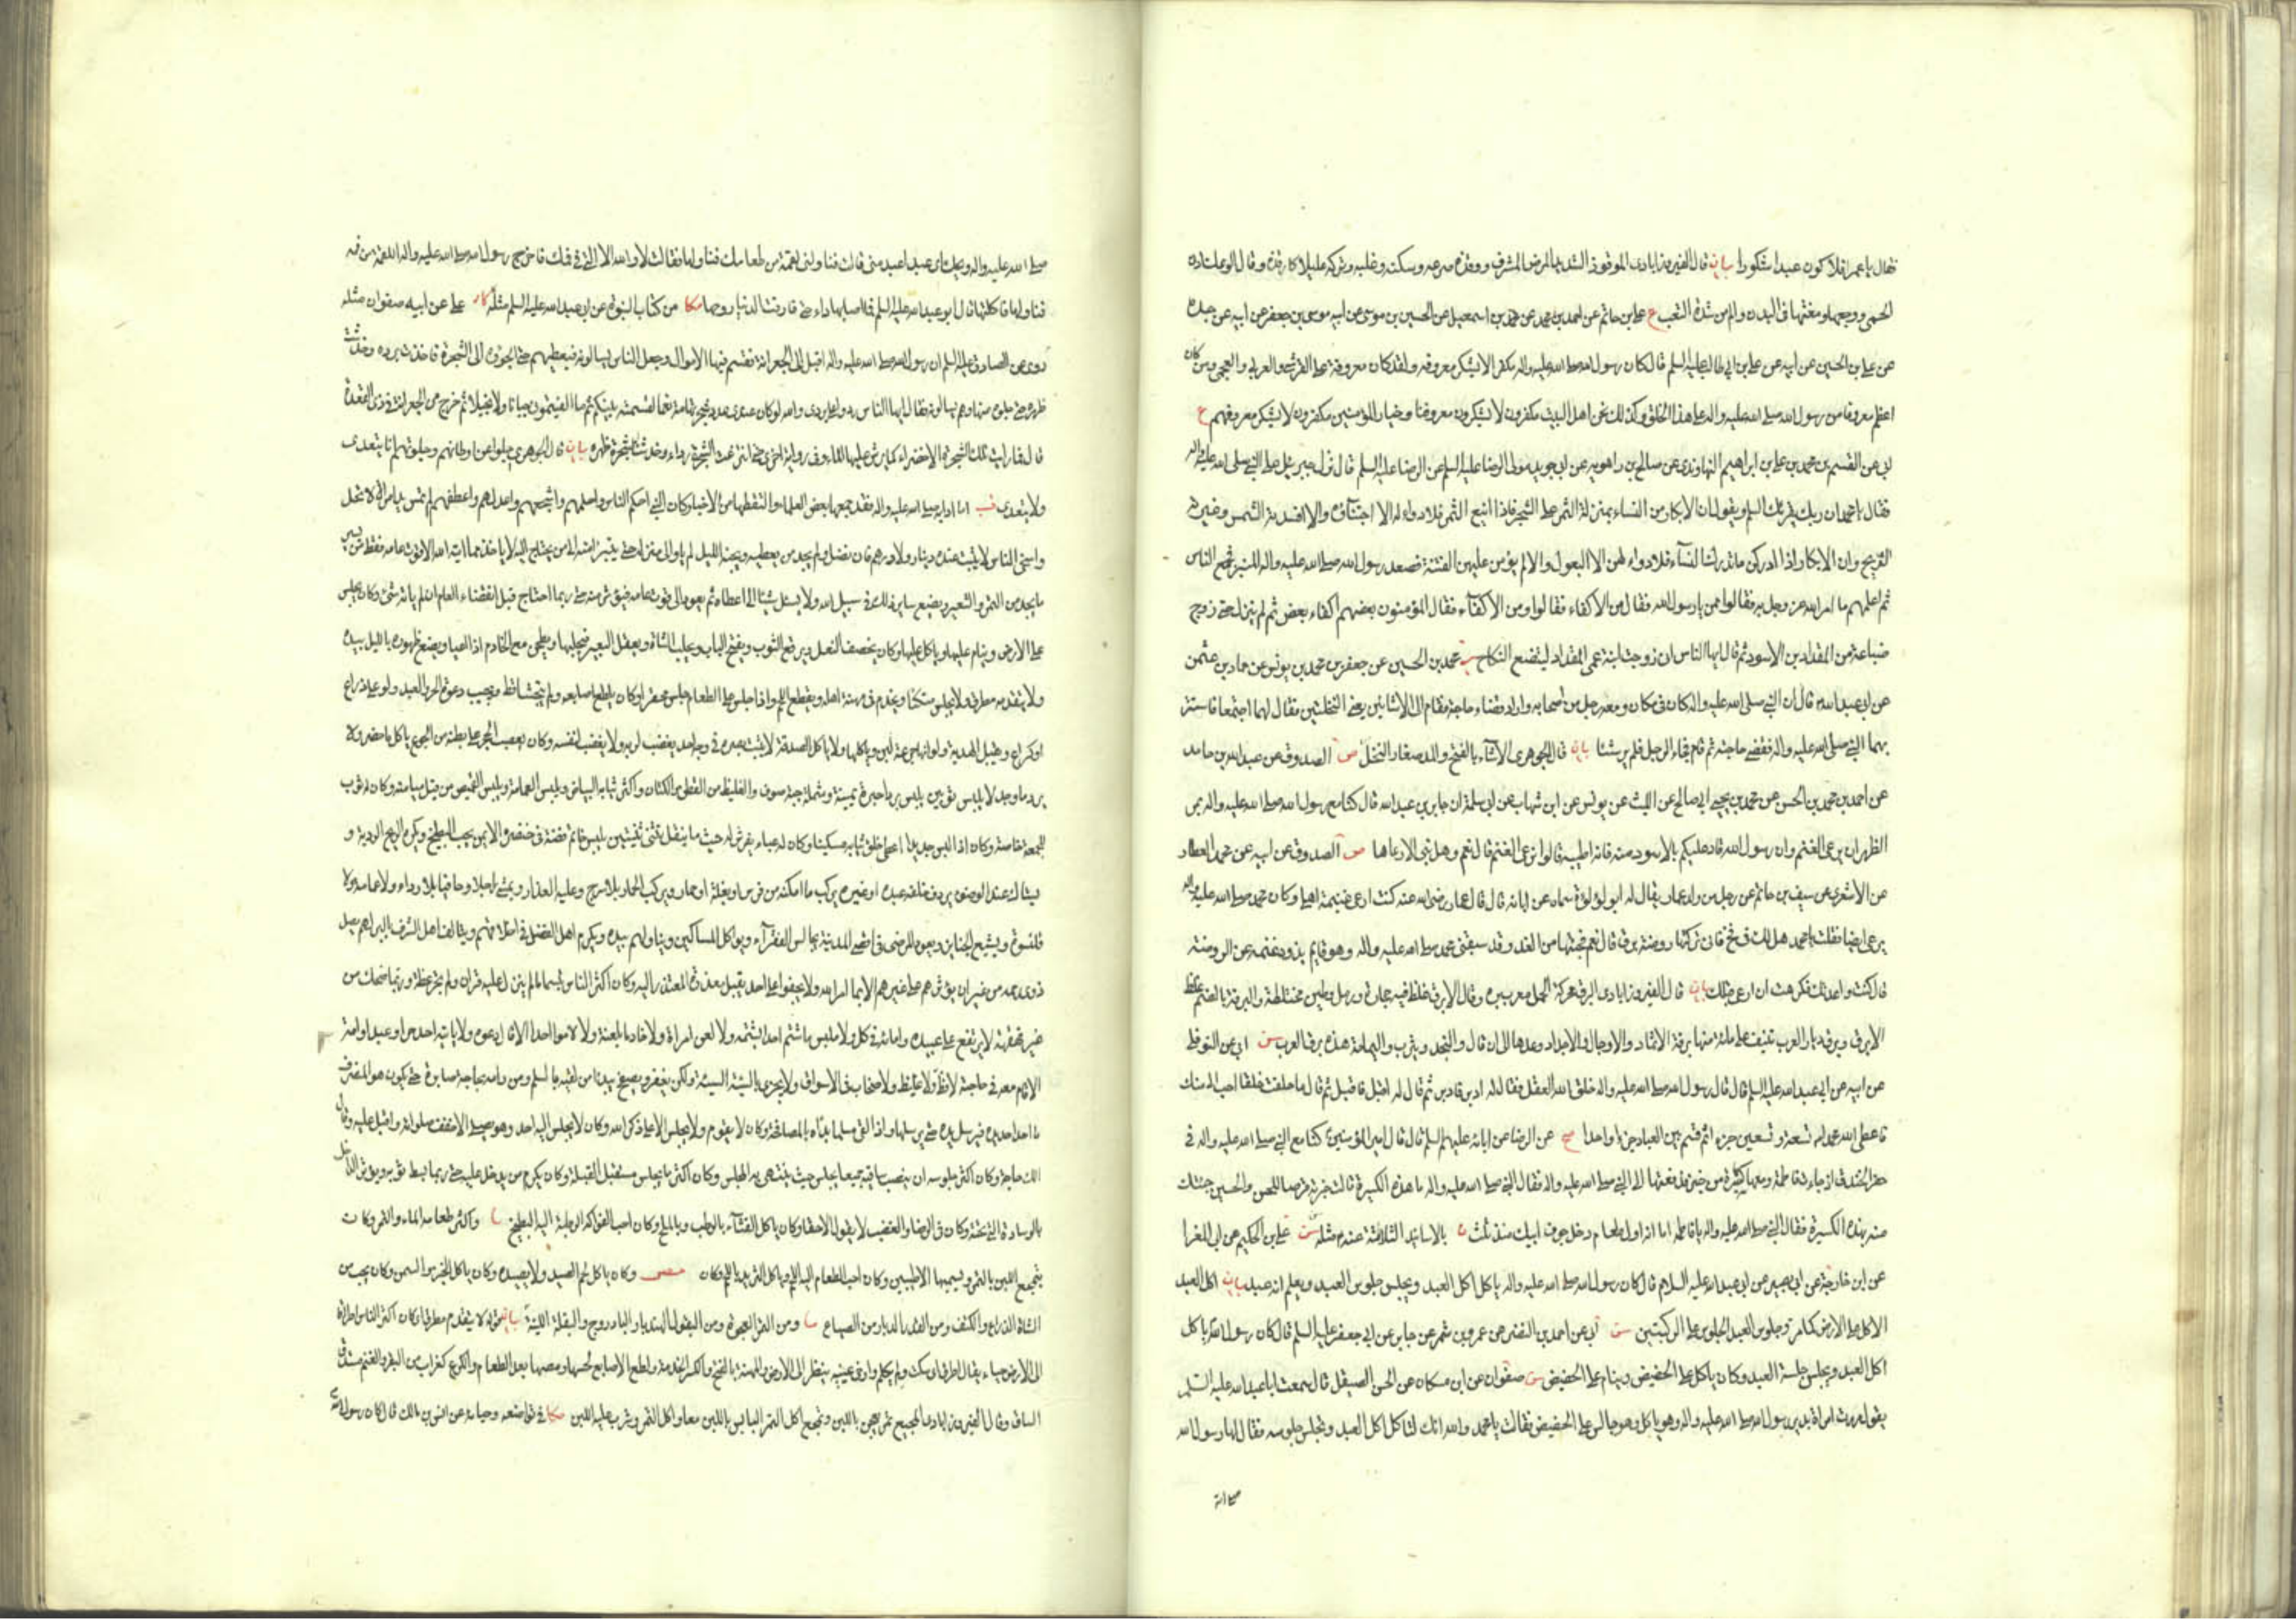 فقال يا عمر افلا اكون عبدا شكورا بيان قال الفيروزابادى الموقوذ الشديد المرض المشرف ووقذه صرعه وسكنه وغلبه وتركه عليلا كاوقذه وقال الوعك اذى
الحمى ووجعها ومغثها فى البدن والم من شدة التعب ع على بن حاتم عن احمد بن محمد عن محمد بن اسمعيل عن الحسين بن موسى عن ابيه موسى بن جعفر عن ابيه عن جده
عن على بن الحسين عن ابيه عن على بن ابى طالب عليه السلم قال كان رسول الله صلى الله عليه واله مكفرا لا يشكر معروفه ولقد كان معروفه على القرشى والعربى والعجمى ومن كان
اعظم معروفا من رسول الله صلى الله عليه واله على هذا الخلق وكذلك نحن اهل البيت مكفرون لا يشكرون معروفنا وخيار المؤمنين مكفرون لا يشكر معروفهم ع
ابى عن القسم بن محمد بن على بن ابراهيم النهاوندى عن صالح بن راهويه عن ابى جويد مولى الرضا عليه السلم عن الرضا عليه السلم قال نزل جبرئيل على النبى صلى الله عليه واله
فقال يا محمد ان ربك يقرئك السلم ويقول ان الابكار من النساء بمنزلة الثمر على الشجر فاذا اينع الثمر فلا دواء له الا اجتناؤه والا افسدته الشمس وغيرته
الريح وان الابكار اذا ادركن ما تدرك النساء فلا دواء لهن الا البعول والا لم يؤمن عليهن الفتنة فصعد رسول الله صلى الله عليه واله المنبر فجمع الناس
ثم اعلمهم ما امر الله عز وجل به فقالوا ممن يا رسول الله فقال من الاكفاء فقالوا ومن الاكفاء فقال المؤمنون بعضهم اكفاء بعض ثم لم ينزل حتى زوج
ضباعة من المقداد بن الاسود ثم قال ايها الناس انى زوجت ابنة عمى المقداد ليتضع النكاح محمد بن الحسين عن جعفر بن محمد بن يونس عن حماد بن عثمن
عن ابى عبد الله قال ان النبى صلى الله عليه واله كان فى مكان ومعه رجل من اصحابه واراد قضاء حاجة فقام الى الاشائين يعنى النخلتين فقال لهما اجتمعا فاستتر
بهما النبى صلى الله عليه واله فقضى حاجته ثم قام فجاء الرجل فلم ير شيئا بيان قال الجوهرى الاشاء بالفتح والمد صغار النخل ص الصدوق عن عبد الله بن حامد
عن احمد بن محمد بن الحسن عن محمد بن يحيى ابى صالح عن الليث عن يونس عن ابن شهاب عن ابى سلمة ان جابر بن عبد الله قال كنا مع رسول الله صلى الله عليه واله بمر
الظهران يرعى الغنم وان رسول الله قال عليكم بالاسود منه فانه اطيبه قالوا ترعى الغنم قال نعم وهل نبى الا رعاها ص الصدوق عن ابيه عن محمد العطار
عن الاشعرى عن سيف بن حاتم عن رجل من ولد عمار يقال له ابو لؤلؤة سماه عن ابائه قال قال عمار رضى الله عنه كنت ارعى غنيمة اهلى وكان محمد صلى الله عليه واله
يرعى ايضا فقلت يا محمد هل لك فى فخ فانى تركتها روضة برق قال نعم فجئتها من الغد وقد سبقنى محمد صلى الله عليه واله وهو قايم يذود غنمه عن الروضة
قال كنت واعدتك فكرهت ان ارعى قبلك بيان قال الفيروزابادى البرق محركة الحمل معرب بره وقال الابرق غلظ فيه حجارة ورمل وطين مختلطة والبرقة بالضم غلظ
الابرق وبرق ديار العرب تنيف على مائة منها برقة الاثماد والاوجال والاجداد وعدها الى ان قال والنجد ويثرب واليمامة هذه برق العرب سن ابى عن النوفلى
عن ابيه عن ابى عبد الله عليه السلم قال قال رسول الله صلى الله عليه واله خلق الله العقل فقال له ادبر فادبر ثم قال له اقبل فاقبل ثم قال ما خلقت خلقا احب الى منك
فاعطى الله محمدا تسعة وتسعين جزءا ثم قسم بين العباد جزءا واحدا صح عن الرضا عن ابائه عليهم السلم قال قال امير المؤمنين كنا مع النبى صلى الله عليه واله فى
حفر الخندق اذ جاءت فاطمة ومعها كسيرة من خبز فدفعتها الى النبى صلى الله عليه واله فقال النبى صلى الله عليه واله ما هذه الكسيرة قالت خبزته قرصا للحسن والحسين جئتك
منه بهذه الكسيرة فقال النبى صلى الله عليه واله يا فاطمة اما انه اول طعام دخل جوف ابيك منذ ثلث ن بالاسانيد الثلاثة عنه مثله سن على بن الحكم عن ابى المغرا
عن ابن خارجة عن ابى بصير عن ابى عبد الله عليه السلام قال كان رسول الله صلى الله عليه واله ياكل اكل العبد ويجلس جلوس العبد ويعلم انه عبد بيان اكل العبد
الاكل على الارض كما مر وجلوس العبد الجلوس على الركبتين سن ابى عن احمد بن النضر عن عمرو بن شمر عن جابر عن ابى جعفر عليه السلم قال كان رسول الله ياكل
اكل العبد ويجلس جلسة العبد وكان ياكل على الحضيض وينام على الحضيض سن صفوان عن ابن مسكان عن الحسن الصيقل قال سمعت ابا عبد الله عليه السلم
يقول مرت امراة بذية برسول الله صلى الله عليه واله وهو ياكل وهو جالس على الحضيض فقالت يا محمد والله انك لتاكل اكل العبد وتجلس جلوسه فقال لها رسول الله
صلى الله
صلى الله عليه واله ويحك اى عبد اعبد منى قالت فناولنى لقمة من طعامك فناولها فقالت لا والله الا التى فى فيك فاخرج رسول الله صلى الله عليه واله اللقمة من فيه
فناولها فاكلتها قال ابو عبد الله عليه السلم فما اصابها داء حتى فارقت الدنيا روحها مكا من كتاب النبوة عن ابى عبد الله عليه السلم مثله كا على عن ابيه صفوان مثله
روى عن الصادق عليه السلم ان رسول الله صلى الله عليه واله اقبل الى الجعرانة فقسم فيها الاموال وجعل الناس يسالونه فيعطيهم حتى الجؤه الى الشجرة فاخذت برده وخدشت
ظهره حتى جلوه عنها وهم يسالونه فقال ايها الناس ردوا على بردى والله لو كان عندى عدد شجر تهامة نعما لقسمته بينكم ثم ما الفيتمونى جبانا ولا بخيلا ثم خرج من الجعرانة فى ذى القعدة
قال فما رايت تلك الشجرة الا خضراء كما يرش عليها الماء وفى رواية اخرى حتى انتزعت الشجرة رداءه وخدشت الشجرة ظهره بيان قال الجوهرى جلوا عن اوطانهم وجلوتهم انا يتعدى
ولا يتعدى قب اما ادابه صلى الله عليه واله فقد جمعها بعض العلماء والتقطها من الاخبار كان النبى احكم الناس واحلمهم واشجعهم واعدلهم واعطفهم لم تمس يده امراة لا تحل
واسخى الناس لا يثبت عنده دينار ولا درهم فان فضل ولم يجد من يعطيه ويجنه الليل لم ياو الى منزله حتى يتبرا منه الى من يحتاج اليه لا ياخذ مما اتاه الله الا قوت عامه فقط من يسير
ما يجد من التمر والشعير ويضع ساير ذلك فى سبيل الله ولا يسئل شيئا الا اعطاه ثم يعود الى قوت عامه فيؤثر منه حتى ربما احتاج قبل انقضاء العام ان لم ياته شئ وكان يجلس
على الارض وينام عليها وياكل عليها وكان يخصف النعل ويرقع الثوب ويفتح الباب ويحلب الشاة ويعقل البعير فيحلبها ويطحن مع الخادم اذا اعيا ويضع طهوره بالليل بيده
ولا يتقدمه مطرق ولا يجلس متكئا ويخدم فى مهنة اهله ويقطع اللحم واذا جلس على الطعام جلس محقرا وكان يلطع اصابعه ولم يتجشا قط ويجيب دعوة الحر والعبد ولو على ذراع
او كراع ويقبل الهدية ولو انها جرعة لبن وياكلها ولا ياكل الصدقة لا يثبت بصره فى وجه احد يغضب لربه ولا يغضب لنفسه وكان يعصب الحجر على بطنه من الجوع ياكل ما حضر ولا
يرد ما وجد لا يلبس ثوبين يلبس بردا حبرة يمنية وشملة جبة صوف والغليظ من القطن والكتان واكثر ثيابه البياض ويلبس العمامة ويلبس القميص من قبل ميامنه وكان له ثوب
للجمعة خاصة وكان اذا لبس جديدا اعطى خلق ثيابه مسكينا وكان له عباء يفرش له حيث ما ينقل يثنى ثنيتين يلبس خاتم فضة فى خنصره الايمن يحب البطيخ ويكره الريح الردية و
يستاك عند الوضوء يردف خلفه عبده او غيره يركب ما امكنه من فرس او بغلة او حمار ويركب الحمار بلا سرج وعليه العذار ويمشى راجلا وحافيا بلا رداء ولا عمامة ولا
قلنسوة ويشيع الجنايز ويعود المرضى فى اقصى المدينة يجالس الفقراء ويواكل المساكين ويناولهم بيده ويكرم اهل الفضل فى اخلاقهم ويتالف اهل الشرف بالبر لهم يصل
ذوى رحمه من غير ان يؤثرهم على غيرهم الا بما امر الله ولا يجفوا على احد يقبل معذرة المعتذر اليه وكان اكثر الناس تبسما ما لم ينزل عليه قران ولم تجر عظة وربما ضحك من
غير قهقهة لا يرتفع على عبيده وامائه فى ماكل ولا ملبس ما شتم احدا بشتمة ولا لعن امراة ولا خادما بلعنة ولا لاموا احدا الا قال دعوه ولا ياتيه احد حر او عبد او امة
الا قام معه فى حاجته لا فظ ولا غليظ ولا صخاب فى الاسواق ولا يجزى بالسيئة السيئة ولكن يغفر ويصفح يبدا من لقيه بالسلم ومن رامه بحاجة صابره حتى يكون هو المنصرف
ما اخذ احد يده فيرسل يده حتى يرسلها واذا لقى مسلما بداه بالمصافحة وكان لا يقوم ولا يجلس الا على ذكر الله وكان لا يجلس اليه احد وهو يصلى الا خفف صلوته واقبل عليه وقال
الك حاجة وكان اكثر جلوسه ان ينصب ساقيه جميعا يجلس حيث ينتهى به المجلس وكان اكثر ما يجلس مستقبل القبلة وكان يكرم من يدخل عليه حتى ربما بسط ثوبه ويؤثر الداخل
بالوسادة التى تحته وكان فى الرضا والغضب لا يقول الا حقا وكان ياكل القثاء بالرطب وبالملح وكان احب الفواكه الرطبة اليه البطيخ واكثر طعامه الماء والتمر وكان
يتمجع اللبن بالتمر ويسميهما الاطيبين وكان احب الطعام اليه اللحم وياكل الثريد باللحم وكان وكان ياكل لحم الصيد ولا يصيده وكان ياكل الخبز والسمن وكان يحب من
الشاة الذراع والكتف ومن القدر الدباء ومن الصباغ ومن التمر العجوة ومن البقول الهندباء والباذروج والبقلة اللينة بيان قوله لا يتقدمه مطرق اى كان اكثر الناس اطراقا
الى الارض حياء يقال اطرق اى سكت ولم يتكلم وارخى عينيه ينظر الى الارض والمهنة بالفتح والكسر الخدمة ولطع الاصابع لحسها ومصها بعد الطعام والكراع كغراب من البقر والغنم مستدق
الساق وقال الفيروزابادى المجيع تمر يعجن باللبن وتمجع اكل التمر اليابس باللبن معا واكل التمر وشرب عليه اللبن مكا فى تواضعه وحيائه عن انس بن مالك قال كان رسول الله